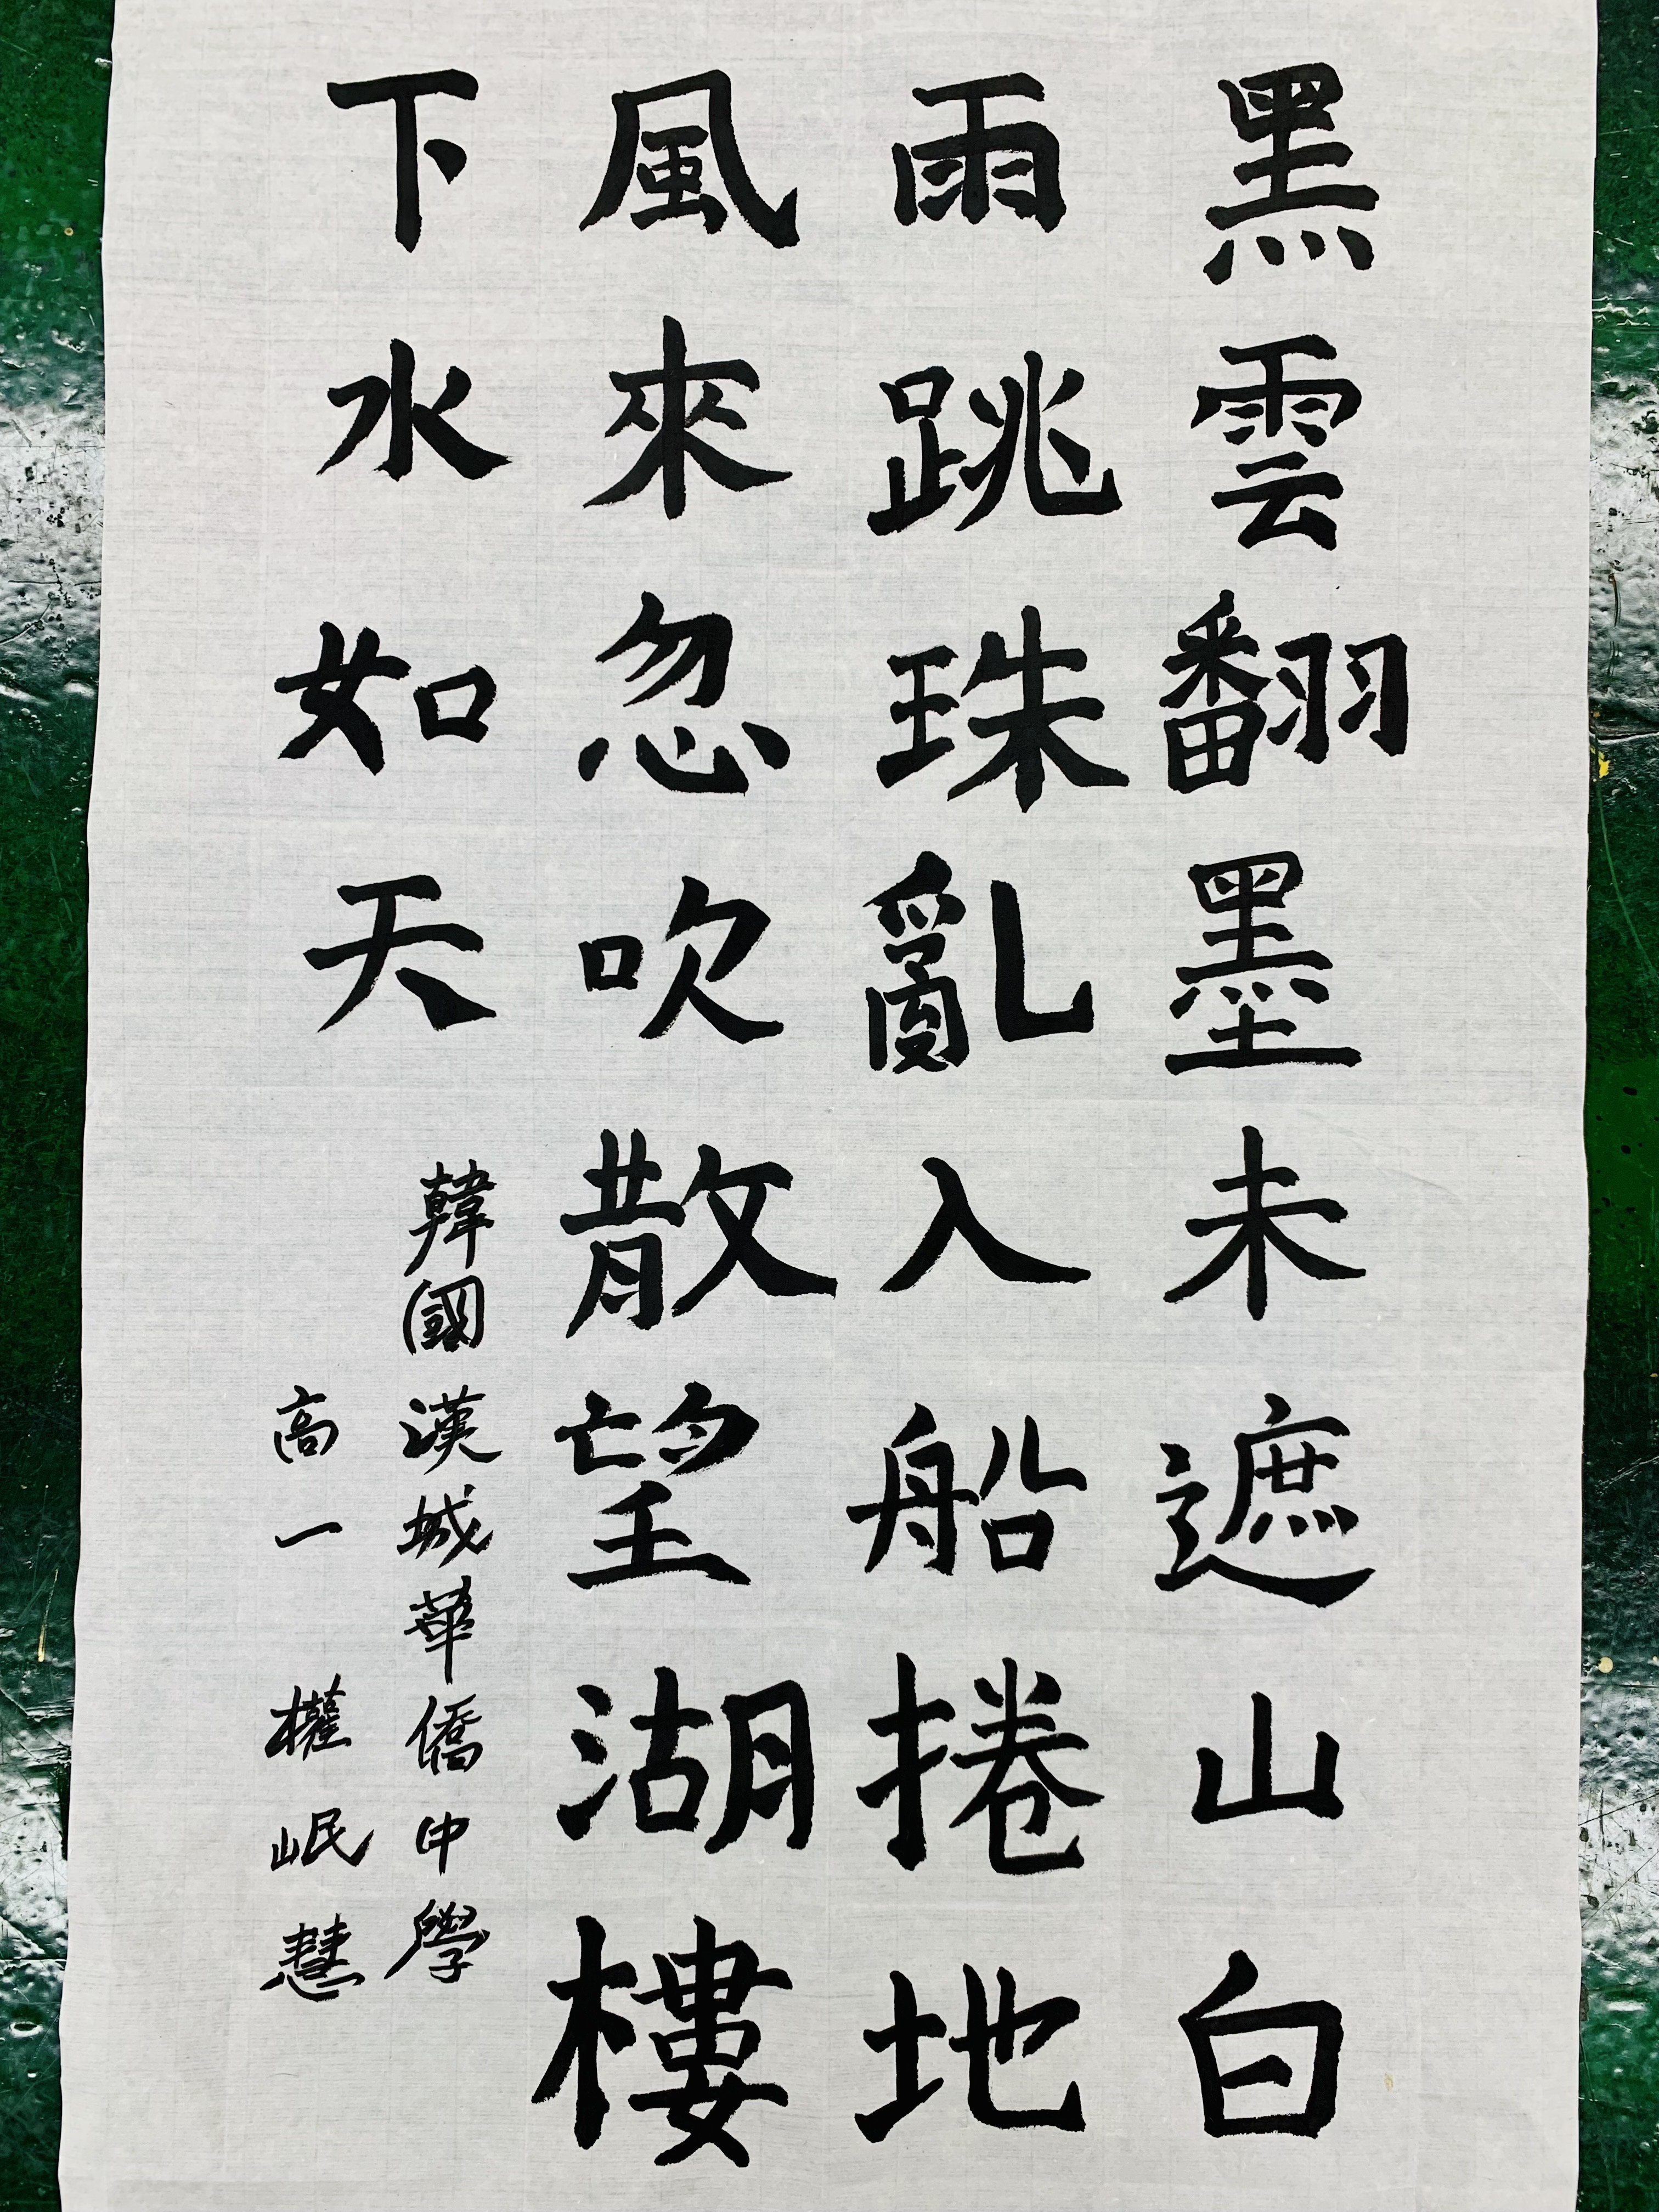 黑雲翻墨未遮山白
雨跳珠亂入船捲地
風來忽吹散望湖樓
下水如天
韓國漢城華僑中學
高一權岷慧